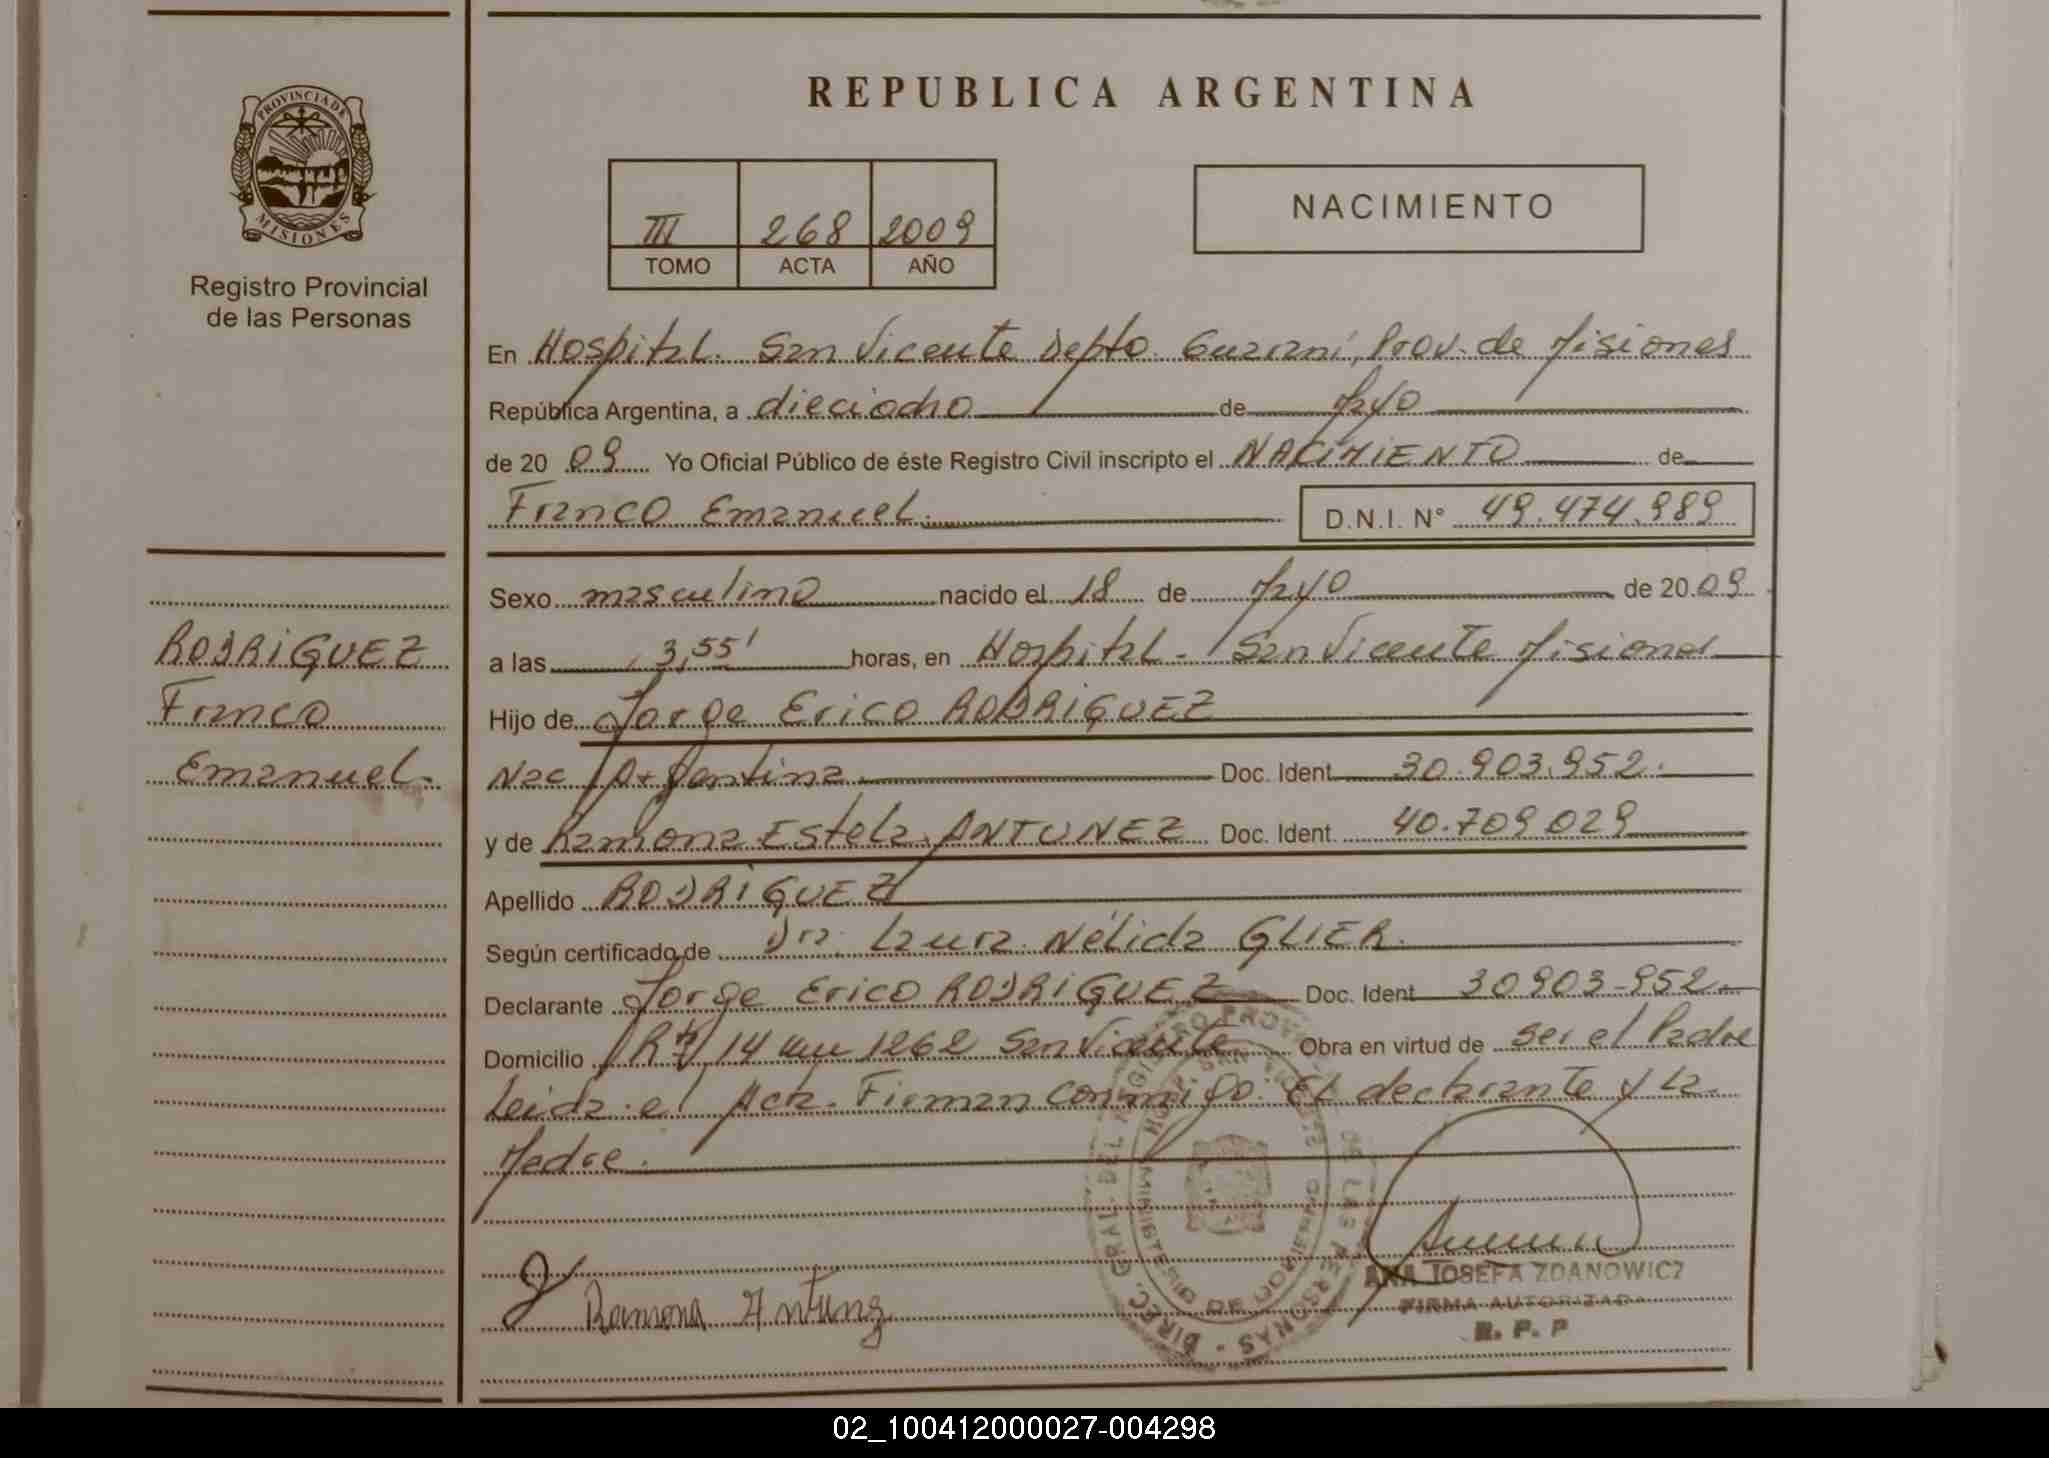 REPUBLICA ARGENTINA
PROVINCIA DE
MISIONES
Registro Provincial
de las Personas
III 268 2009
TOMO ACTA AÑO
NACIMIENTO
En Hospital. San Vicente Depto. Guaraní, Prov. de Misiones
República Argentina, a dieciocho de Mayo
de 2009 Yo Oficial Público de éste Registro Civil inscripto el NACIMIENTO de
Franco Emanuel. D.N.I. N° 49.474.989
RODRIGUEZ
Franco
Emanuel.
Sexo masculino nacido el 18 de Mayo de 2009
a las 3,55' horas, en Hospital - San Vicente Misiones
Hijo de Jorge Erico RODRIGUEZ
Nac Argentina Doc. Ident 30.903.952.
y de Ramona Estela ANTUNEZ Doc. Ident. 40.709.029
Apellido RODRIGUEZ
Según certificado de Dra. Laura Nélida GLIER.
Declarante Jorge Erico RODRIGUEZ Doc. Ident 30903-952
Domicilio 14 km 1262 San Vicente Obra en virtud de ser el Padre
Leida el Acta. Firman conmigo. El declarante y La
Madre.
DIREC. GRAL. DEL REGISTRO PROV. DE LAS PERSONAS
HOSP. SAN VICENTE
MINISTERIO DE GOBIERNO
Ramona Antunez
ANA JOSEFA ZDANOWICZ
FIRMA AUTORIZADA
R. P. P
02_100412000027-004298